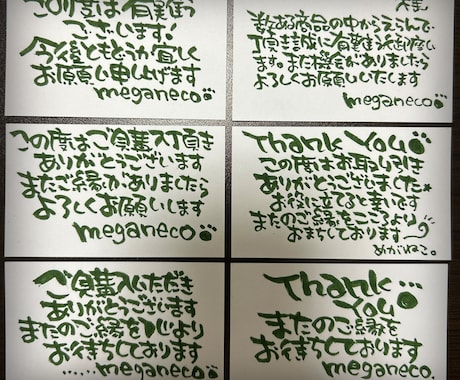 この度は有難う
ございます！
今後ともどうか宜しく
お願い申し上げます
meganeco
様
数ある商品の中からえらんで
頂き誠に有難う御座居い
ます。また機会がありましたら
よろしくお願いいたします
meganeco
この度はご購入頂き
ありがとうございます
またご縁がありましたら
よろしくお願いします
meganeco
Thank You
この度はお取り引き
ありがとうございました
お役に立てると幸いです
またのご縁をこころより
おまちしております
めがねこ。
ご購入いただき
ありがとうございます
またのご縁を心より
お待ちしております
......meganeco
Thank
You
またのご縁を
お待ちしております
meganeco.